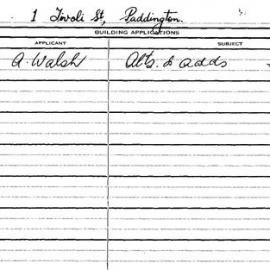 1 Tivoli St, Paddington.
BUILDING APPLICATIONS
APPLICANT SUBJECT
A. Walsh Alts. & adds